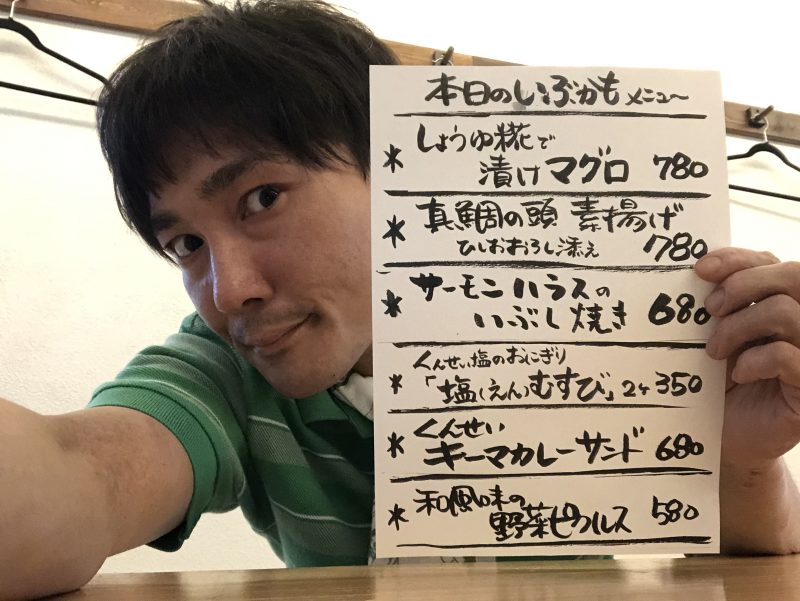 本日のいぶかもメニュ〜
* しょうゆ糀で
漬けマグロ 780
* 真鯛の頭 素揚げ
ひしおおろし添え 780
* サーモンハラスの
いぶし焼き 680
くんせい塩のおにぎり
* 「塩(えん)むすび」2ヶ 350
* くんせい
キーマカレーサンド 680
* 和風味の
野菜ピクルス 580